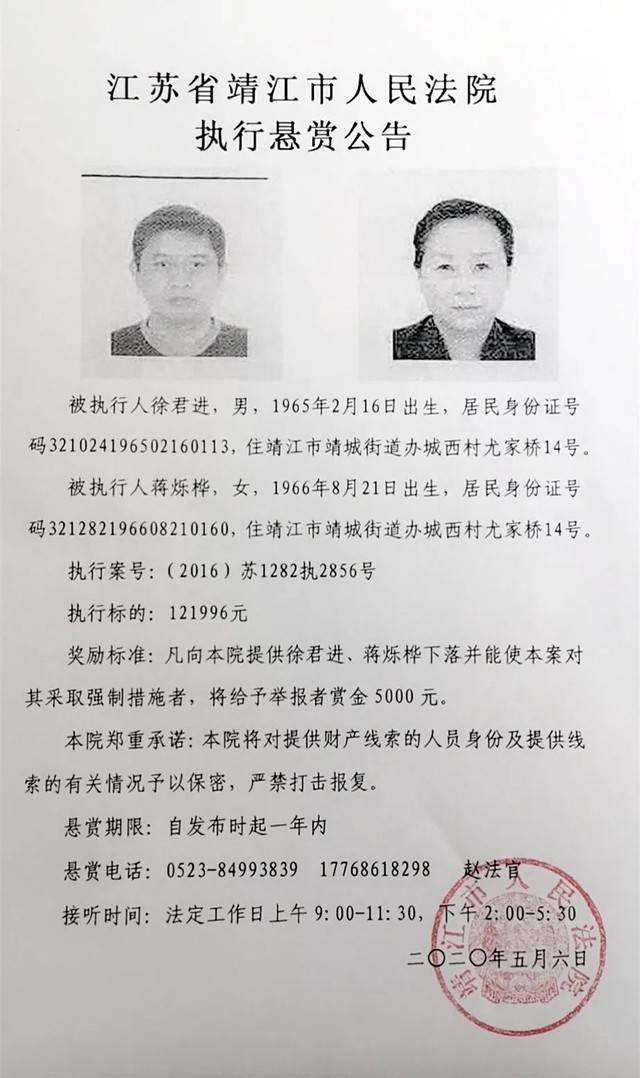 江苏省靖江市人民法院
执行悬赏公告
被执行人徐君进，男，1965年2月16日出生，居民身份证号
码321024196502160113，住靖江市靖城街道办城西村尤家桥14号。
被执行人蒋烁桦，女，1966年8月21日出生，居民身份证号
码321282196608210160，住靖江市靖城街道办城西村尤家桥14号。
执行案号：（2016）苏1282执2856号
执行标的：121996元
奖励标准：凡向本院提供徐君进、蒋烁桦下落并能使本案对
其采取强制措施者，将给予举报者赏金 5000 元。
本院郑重承诺：本院将对提供财产线索的人员身份及提供线
索的有关情况予以保密，严禁打击报复。
悬赏期限：自发布时起一年内
悬赏电话：0523-84993839 17768618298 赵法官
接听时间：法定工作日上午 9:00-11:30，下午 2:00-5:30
二〇二〇年五月六日
靖江市人民法院